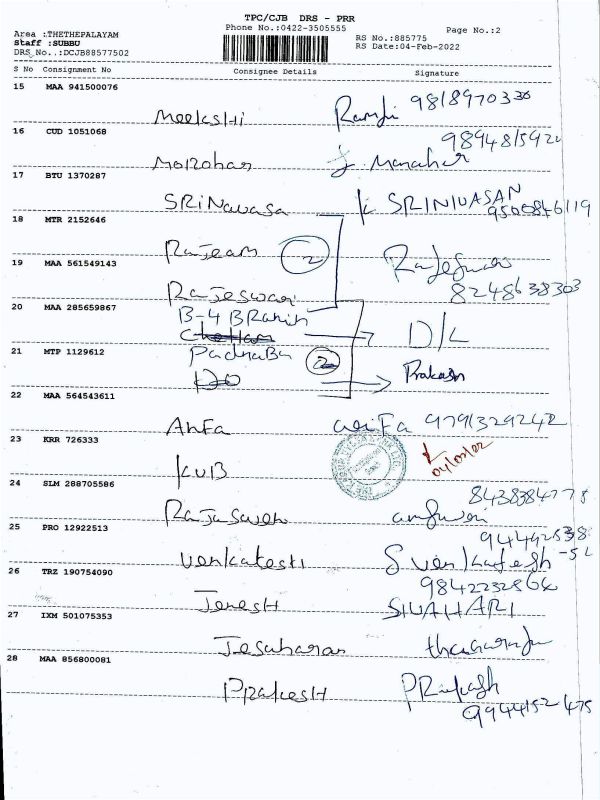 TPC/CJB DRS - PRR
Phone No.:0422-3505555
Page No.:2
Area :THETHEPALAYAM
Staff :SUBBU
DRS No..:DCJB88577502
RS No.:885775
RS Date:04-Feb-2022
S No Consignment No Consignee Details Signature
15 MAA 941500076
Meekshi Ramji 9818970336
16 CUD 1051068
9894815920
Manohar
17 BTU 1370287
SRiNavasa K SRINIVASAN
9500846119
18 MTR 2152646
2
19 MAA 561549143
Rajeswari
8248638303
20 MAA 285659867
B-4 BRanch
D/L
21 MTP 1129612
PadnaBa 2
Do Prakash
22 MAA 564543611
9791329242
23 KRR 726333
KVB
04/02/22
24 SLM 288705586
25 PRO 12922513
Venkatesh S Venkatesh
26 TRZ 190754090
9842232564
JeneSH SIVAHARI
27 IXM 501075353
28 MAA 856800081
PRakesH PRakash
9944152475